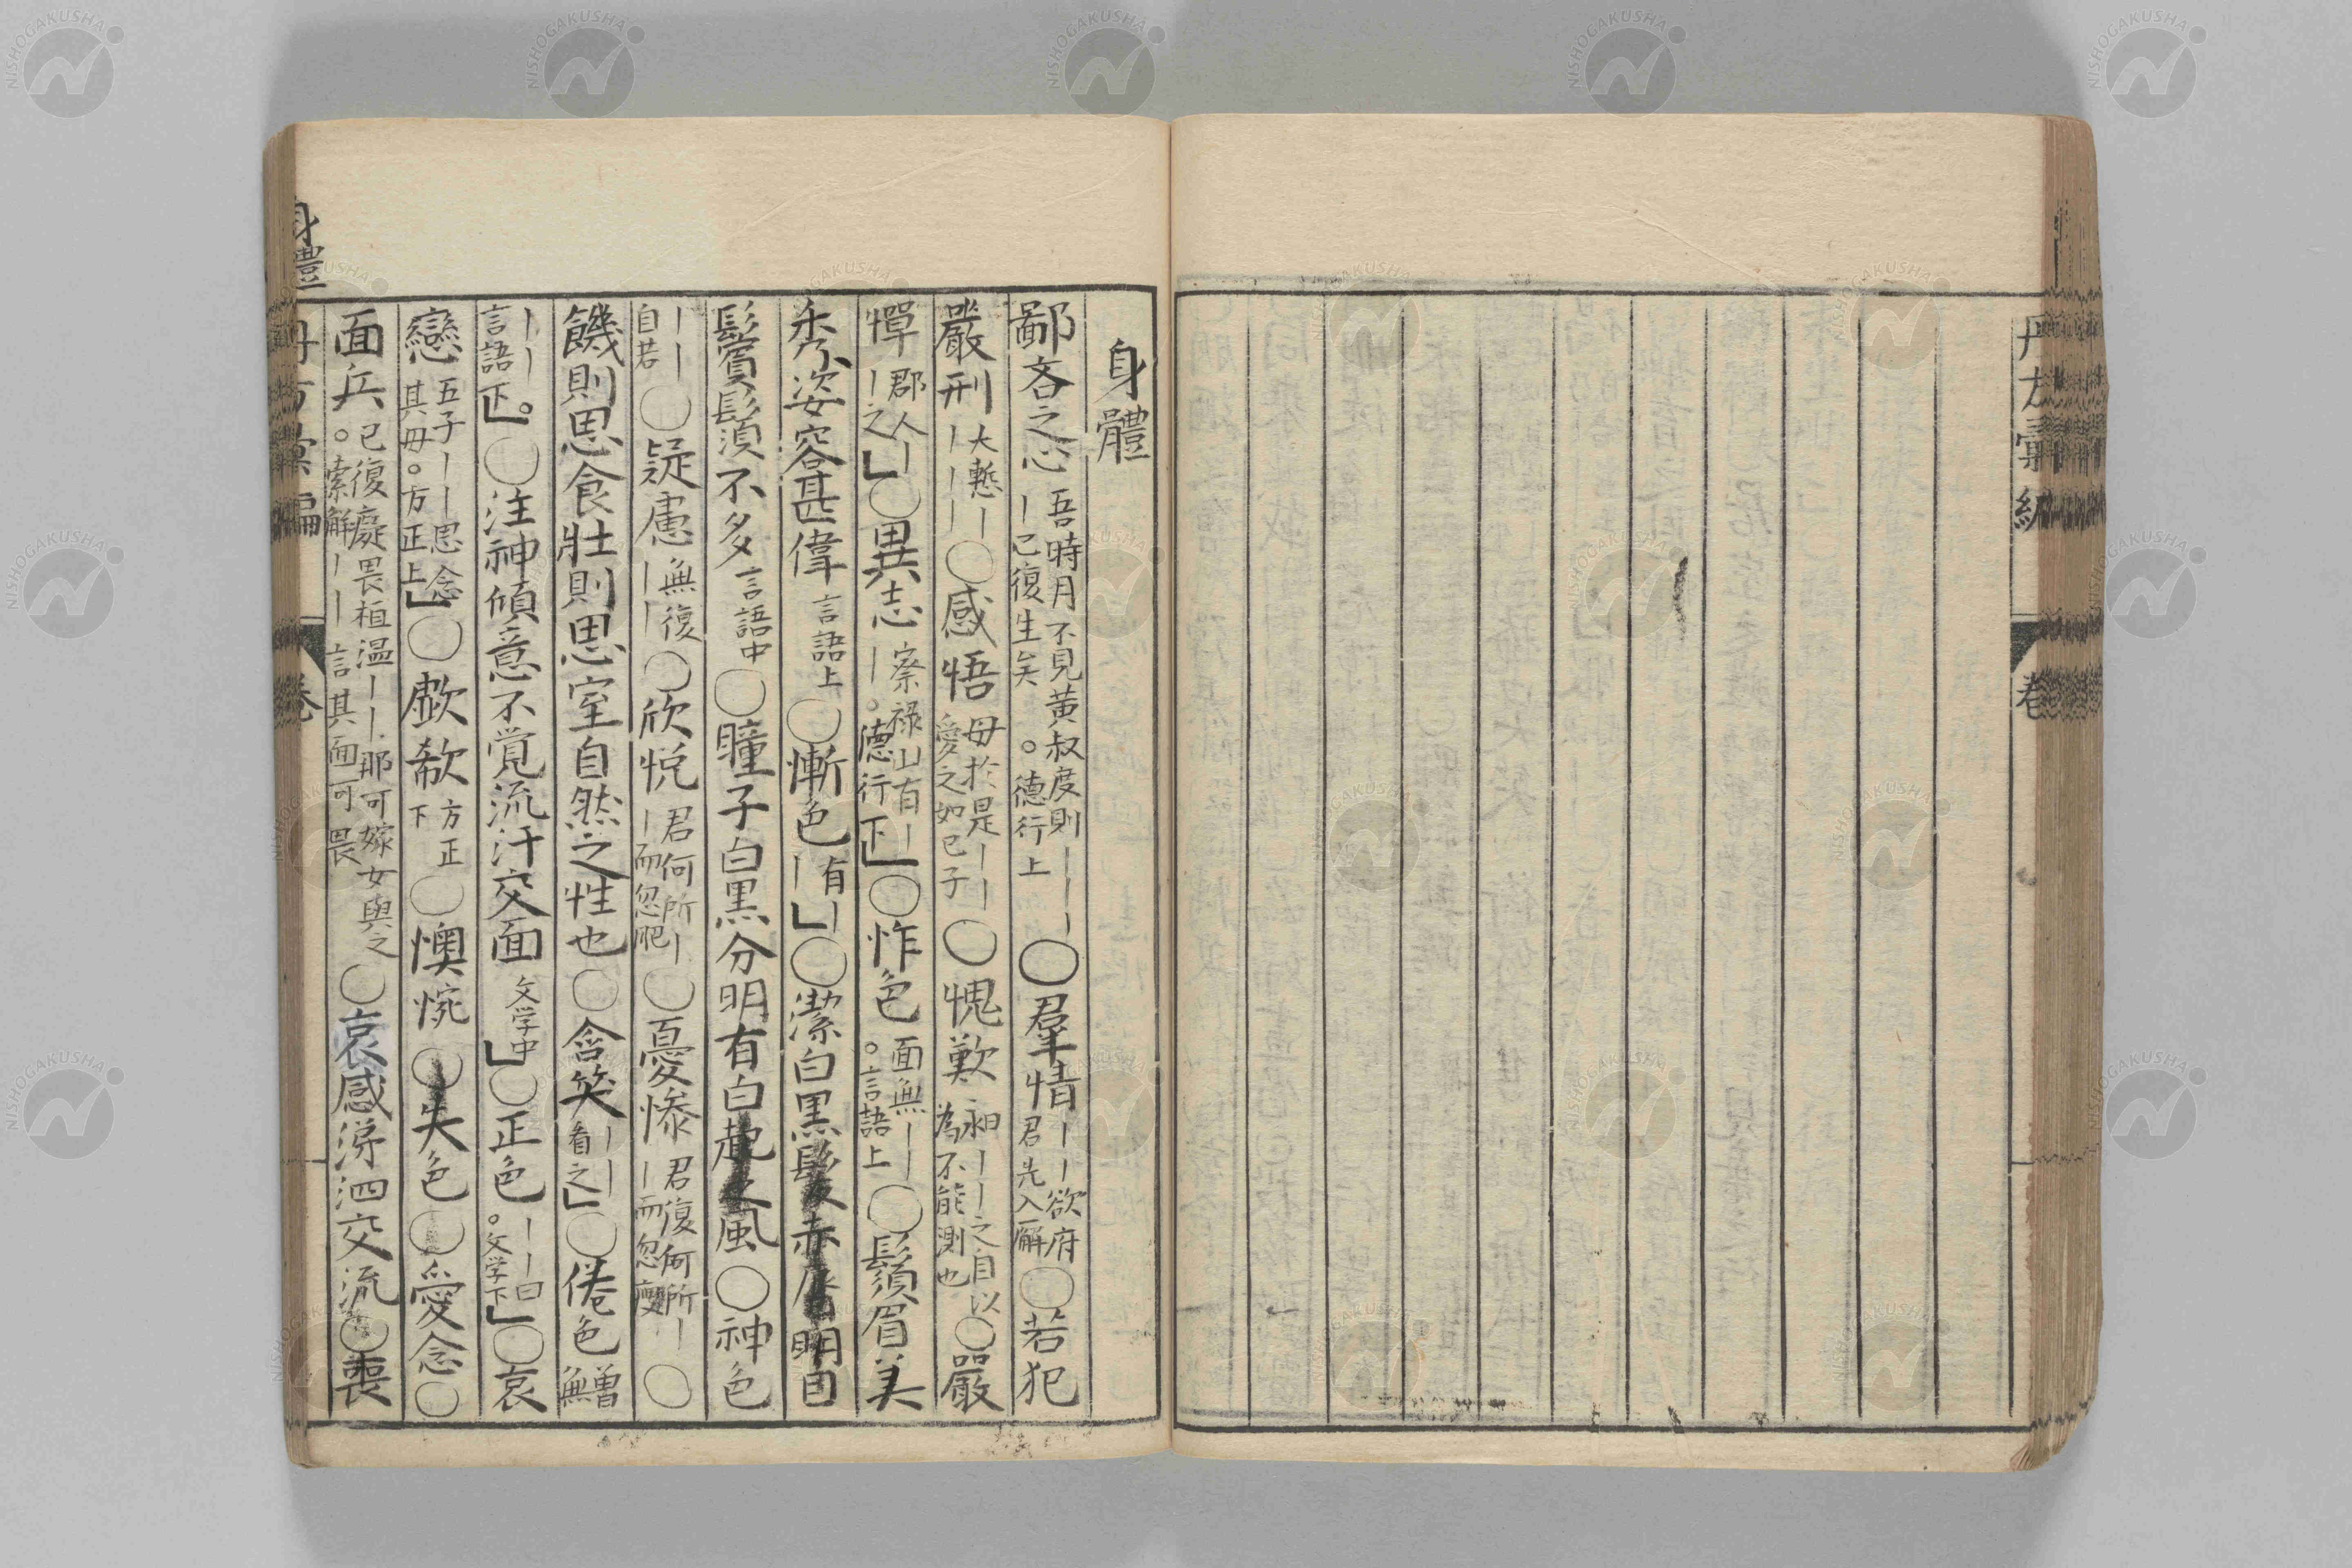 身體
鄙吝之心 吾時月不見黃叔度則｜｜｜｜已復生矣。德行上 ○羣情 ｜｜欲府君先入廨 ○若犯
嚴刑 大慙｜｜｜｜ ○感悟 母於是｜｜愛之如己子 ○愧歎 昶｜｜之自以為不能測也 ○嚴
憚 郡人｜｜之」 ○異志 察祿山有｜｜。德行下」 ○怍色 面無｜｜。言語上 ○鬚眉美
秀姿容甚偉 言語上 ○慚色 有｜｜」 ○潔白黑髮赤唇明目
鬢鬚不多 言語中 ○瞳子白黑分明有白起之風 ○神色
｜｜自若 ○疑慮 無復｜｜ ○欣悅 君何所｜｜而忽肥 ○憂慘 君復何所｜｜而忽瘦 ○
饑則思食壯則思室自然之性也 ○含笑 ｜｜看之」 ○倦色 曾無
｜｜言語下」。 ○注神傾意不覚流汗交面 文学中」 ○正色 ｜｜曰。文学下」 ○哀
戀 五子｜｜思念其母。方正上」 ○歔欷 方正下 ○懊惋 ○失色 ○愛念 ○
面兵 已復癡畏桓温｜｜那可嫁女與之。索解｜｜言其面可畏 ○哀感涕泗交流 ○喪
身體
丹方彙編 卷
丹方彙編 卷
NISHOGAKUSHA